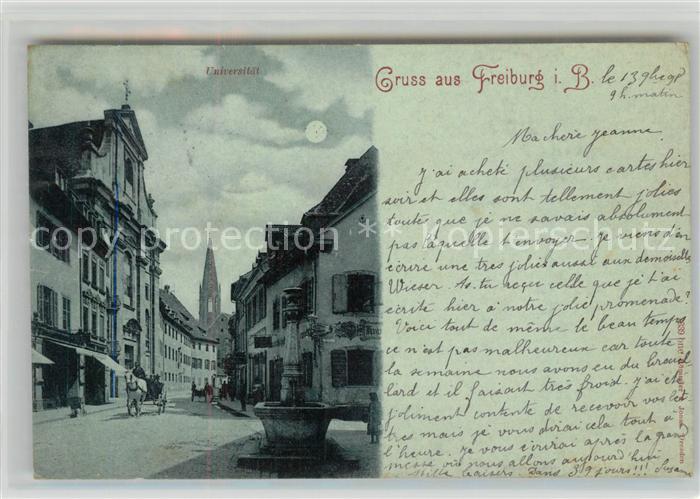 Universität
Gruss aus Freiburg i. B. le 13 9bre 98
9 h. matin
Ma chère Jeanne
J'ai acheté plusieurs cartes hier
soir et elles sont tellement jolies
toutes que je ne savais absolument
pas laquelle t'envoyer. je viens d'en
écrire une très jolie aussi aux demoiselles
Wieser. As-tu reçu celle que je t'ai
écrite hier à notre jolie promenade?
Voici tout de même le beau temps
ce n'est pas malheureux car toute
la semaine nous avons eu du brouil
lard et il faisait très froid. J'ai été
joliment contente de recevoir vos let
tres mais je vous dirai cela tout à
l'heure. Je vous écrirai après la grand
messe où nous allons aujourd'hui
Mille baisers. Dans 39 jours!!! Susanne
copyright Kopierschutz